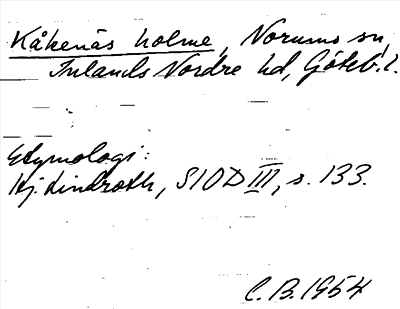 Kåkenäs holme, Norums sn,
Inlands Nordre hd, Göteb. l.
Etymologi:
Hj. Lindroth, SIOD III, s. 133.
C. B. 1954